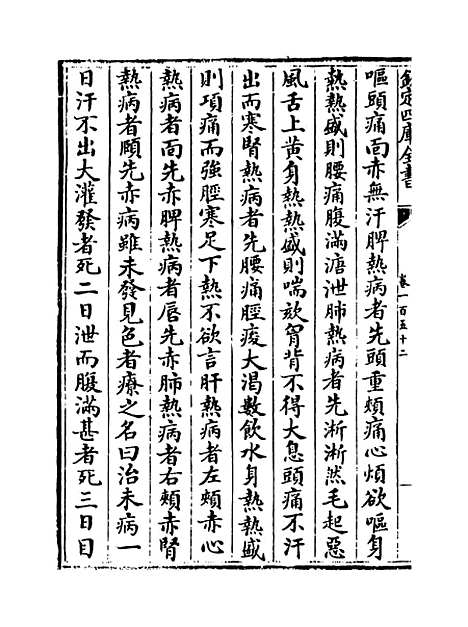 欽定四庫全書
卷一百五十二
嘔頭痛面赤無汗脾熱病者先頭重頰痛心煩欲嘔身
熱熱盛則腰痛腹滿溏泄肺熱病者先淅淅然毛起惡
風舌上黄身熱熱盛則喘欬胷背不得大息頭痛不汗
出而寒腎熱病者先腰痛脛痠大渴數飲水身熱熱盛
則項痛而強脛寒足下熱不欲言肝熱病者左頰赤心
熱病者面先赤脾熱病者唇先赤肺熱病者右頰赤腎
熱病者頥先赤病雖未發見色者療之名曰治未病一
日汗不出大灌發者死二日泄而腹滿甚者死三日目